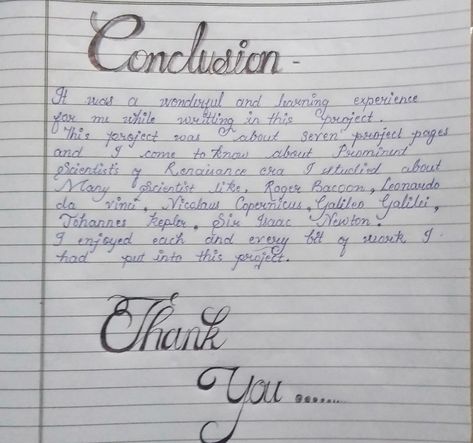 Conclusion -
It was a wonderful and learning experience
for me while writting in this project.
This project was about seven project pages
and I come to know about Prominent
Scientists of Renaisance era I studied about
Many Scientist like, Roger Bacoon, Leonardo
da vinci, Nicolaus Copernicus, Galileo Galilei,
Johannes kepler, Sir Isaac Newton.
I enjoyed each and every bit of work I
had put into this project.
Thank
You ......